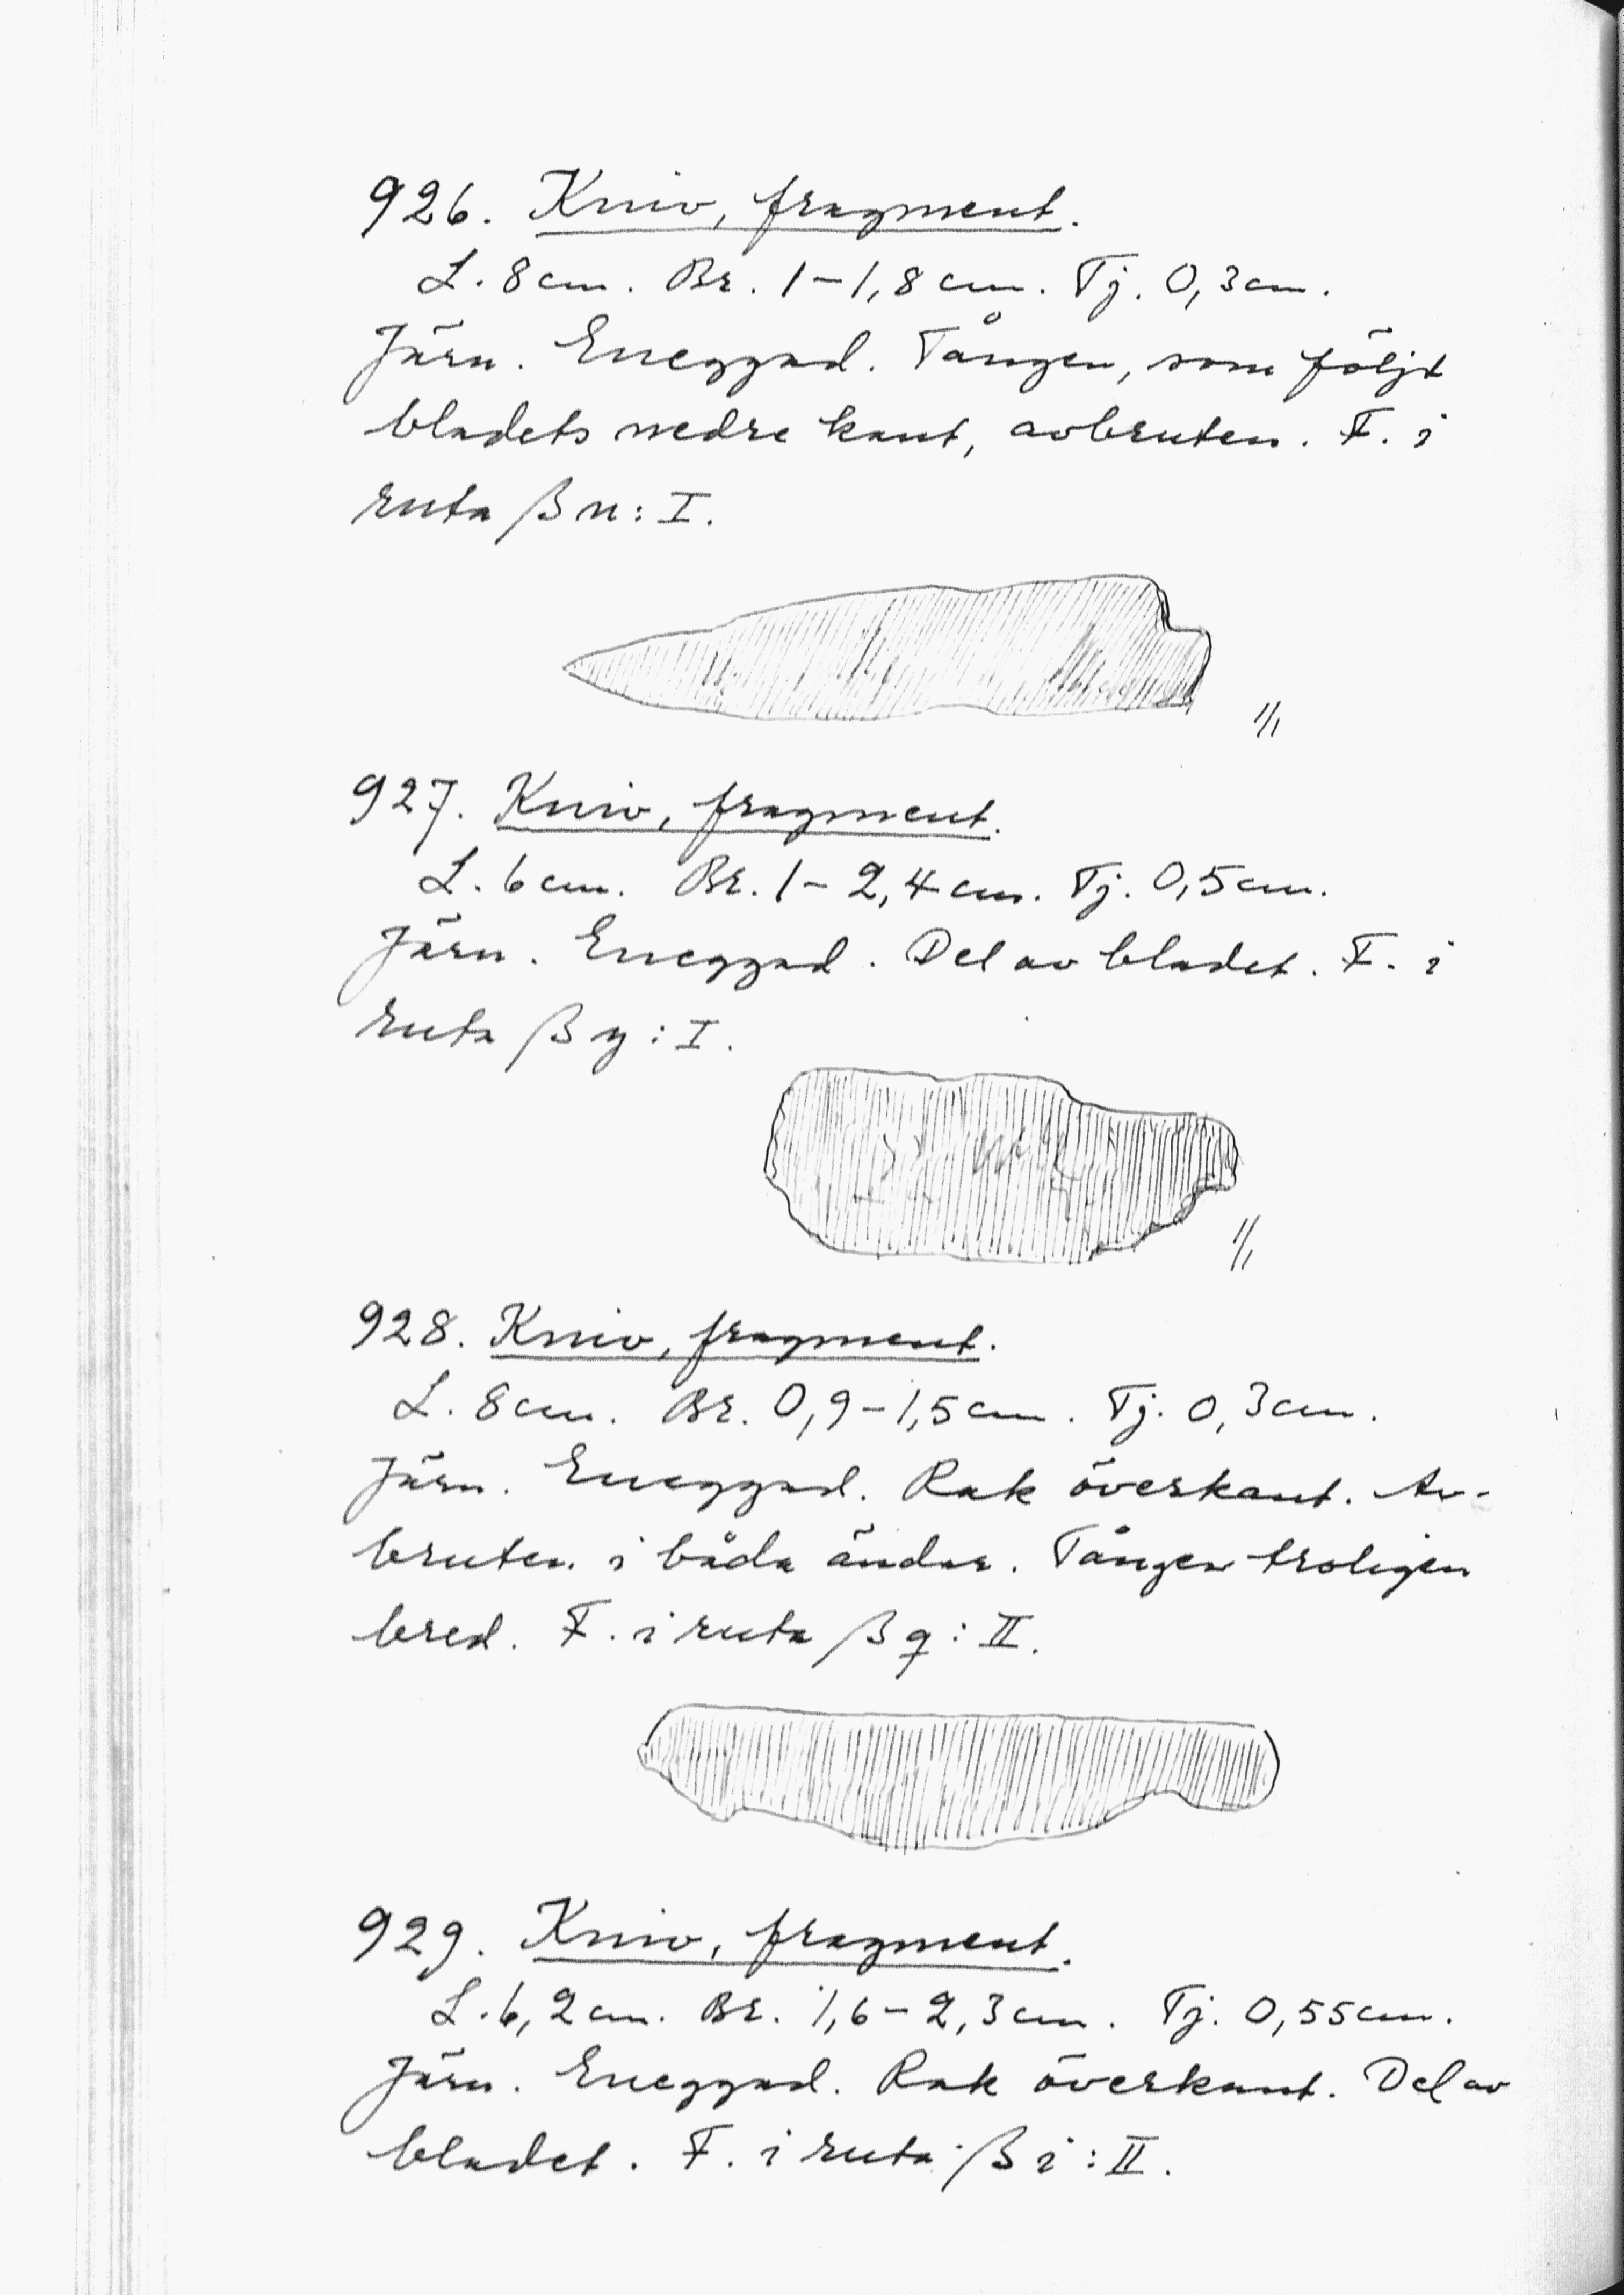 926. Kniv, fragment.
L. 8 cm. Br. 1-1,8 cm. Tj. 0,3 cm.
Järn. Eneggad. Tången, som följt
bladets nedre kant, avbruten. F. i
ruta β n: I.
1/1
927. Kniv, fragment.
L. 6 cm. Br. 1-2,4 cm. Tj. 0,5 cm.
Järn. Eneggad. Del av bladet. F. i
ruta β y: I.
1/1
928. Kniv, fragment.
L. 8 cm. Br. 0,9-1,5 cm. Tj. 0,3 cm.
Järn. Eneggad. Rak överkant. Av-
bruten i båda ändar. Tången troligen
bred. F. i ruta β q: II.
929. Kniv, fragment.
L. 6,2 cm. Br. 1,6-2,3 cm. Tj. 0,55 cm.
Järn. Eneggad. Rak överkant. Del av
bladet. F. i ruta β i: II.